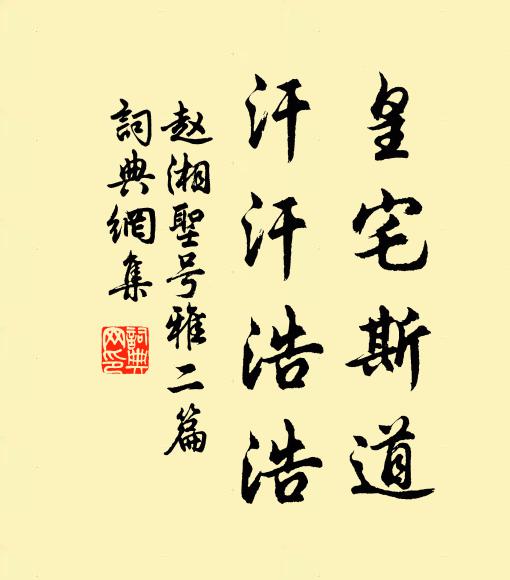 皇宅斯道
汗汗浩浩
赵湘聖号雅二篇
詞典網集
詞典
网印